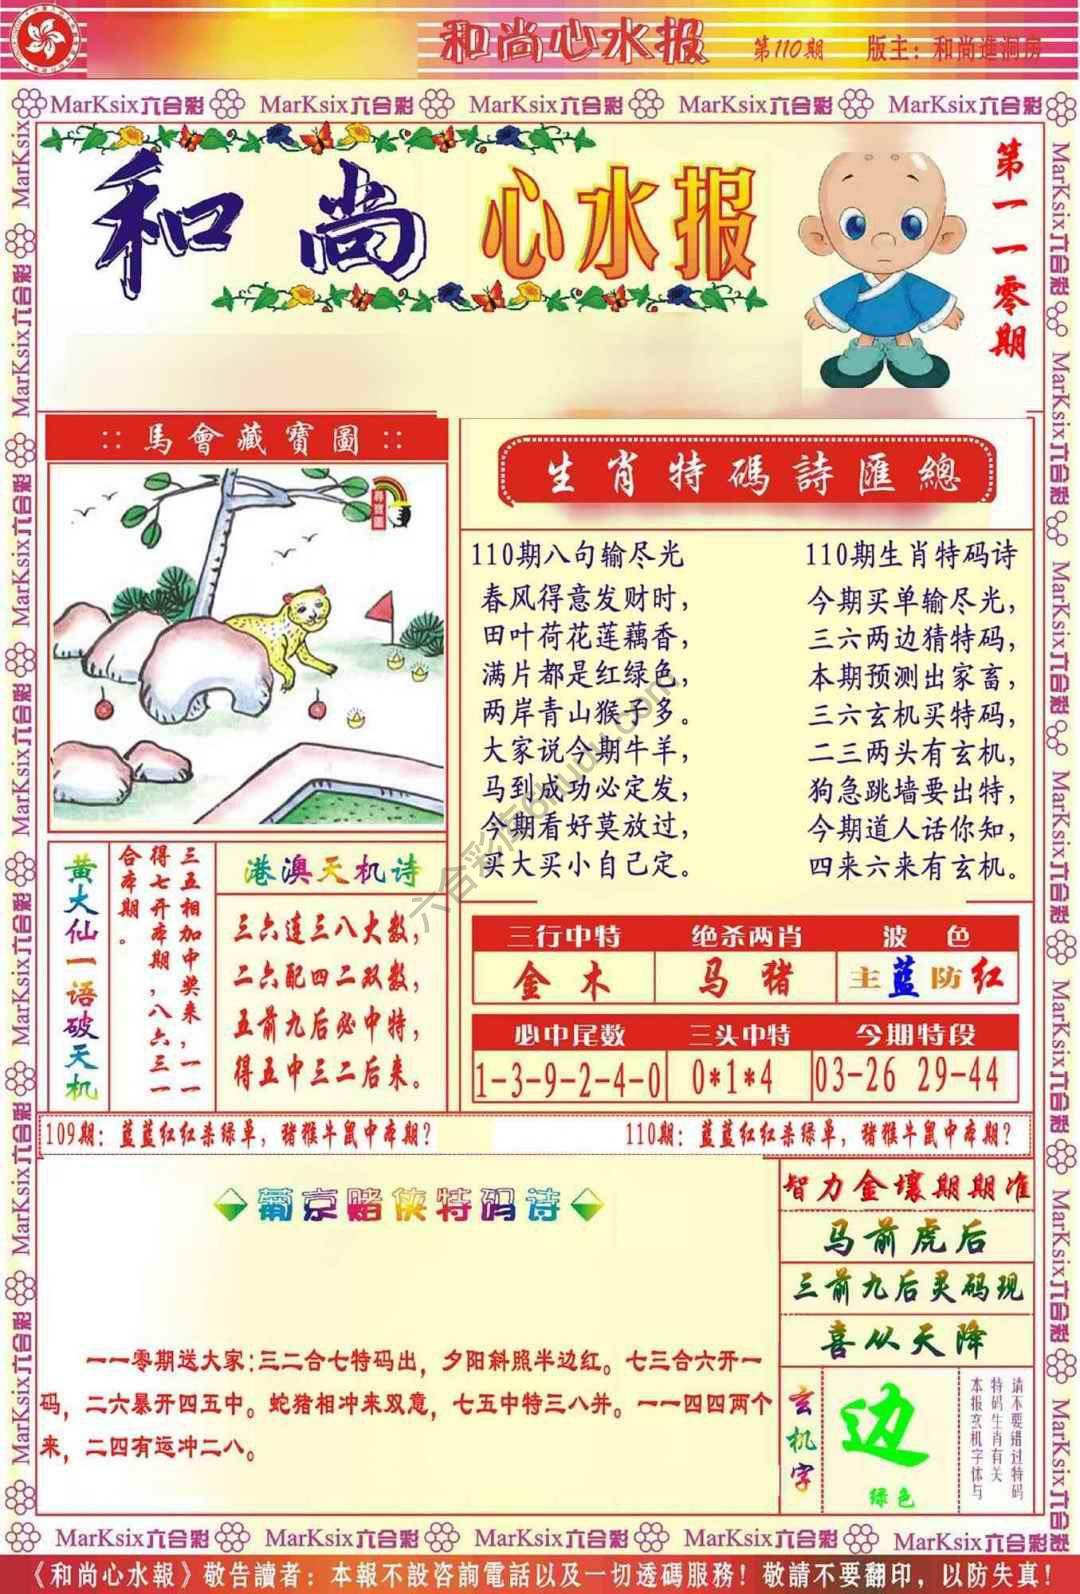 和尚心水报 第110期 版主：和尚進洞房
MarKsix六合彩 MarKsix六合彩 MarKsix六合彩 MarKsix六合彩 MarKsix六合彩
和尚 心水报
第一一零期
::馬會藏寶圖::
尋寶圖
生肖特碼詩匯總
110期八句输尽光
春风得意发财时，
田叶荷花莲藕香，
满片都是红绿色，
两岸青山猴子多。
大家说今期牛羊，
马到成功必定发，
今期看好莫放过，
买大买小自己定。
110期生肖特码诗
今期买单输尽光，
三六两边猜特码，
本期预测出家畜，
三六玄机买特码，
二三两头有玄机，
狗急跳墙要出特，
今期道人话你知，
四来六来有玄机。
黄大仙一语破天机
三五相加中奖来，一一
得七开本期，八六三一
合本期。
港澳天机诗
三六连三八大数，
二六配四二双数，
五前九后必中特，
得五中三二后来。
三行中特 绝杀两肖 波色
金木 马猪 主蓝防红
必中尾数 三头中特 今期特段
1-3-9-2-4-0 0*1*4 03-26 29-44
109期：蓝蓝红红杀绿单，猪猴牛鼠中本期？
110期：蓝蓝红红杀绿单，猪猴牛鼠中本期？
葡京赌侠特码诗
一一零期送大家:三二合七特码出，夕阳斜照半边红。七三合六开一
码，二六暴开四五中。蛇猪相冲来双意，七五中特三八并。一一四四两个
来，二四有运冲二八。
智力金壤期期准
马前虎后
三前九后灵码现
喜从天降
玄机字
边
绿色
请不要错过特码
特码生肖有关
本报玄机字体与
六合彩库6huuu.com
MarKsix六合彩 MarKsix六合彩 MarKsix六合彩 MarKsix六合彩 MarKsix六合彩
《和尚心水報》敬告讀者：本報不設咨詢電話以及一切透碼服務！敬請不要翻印，以防失真！